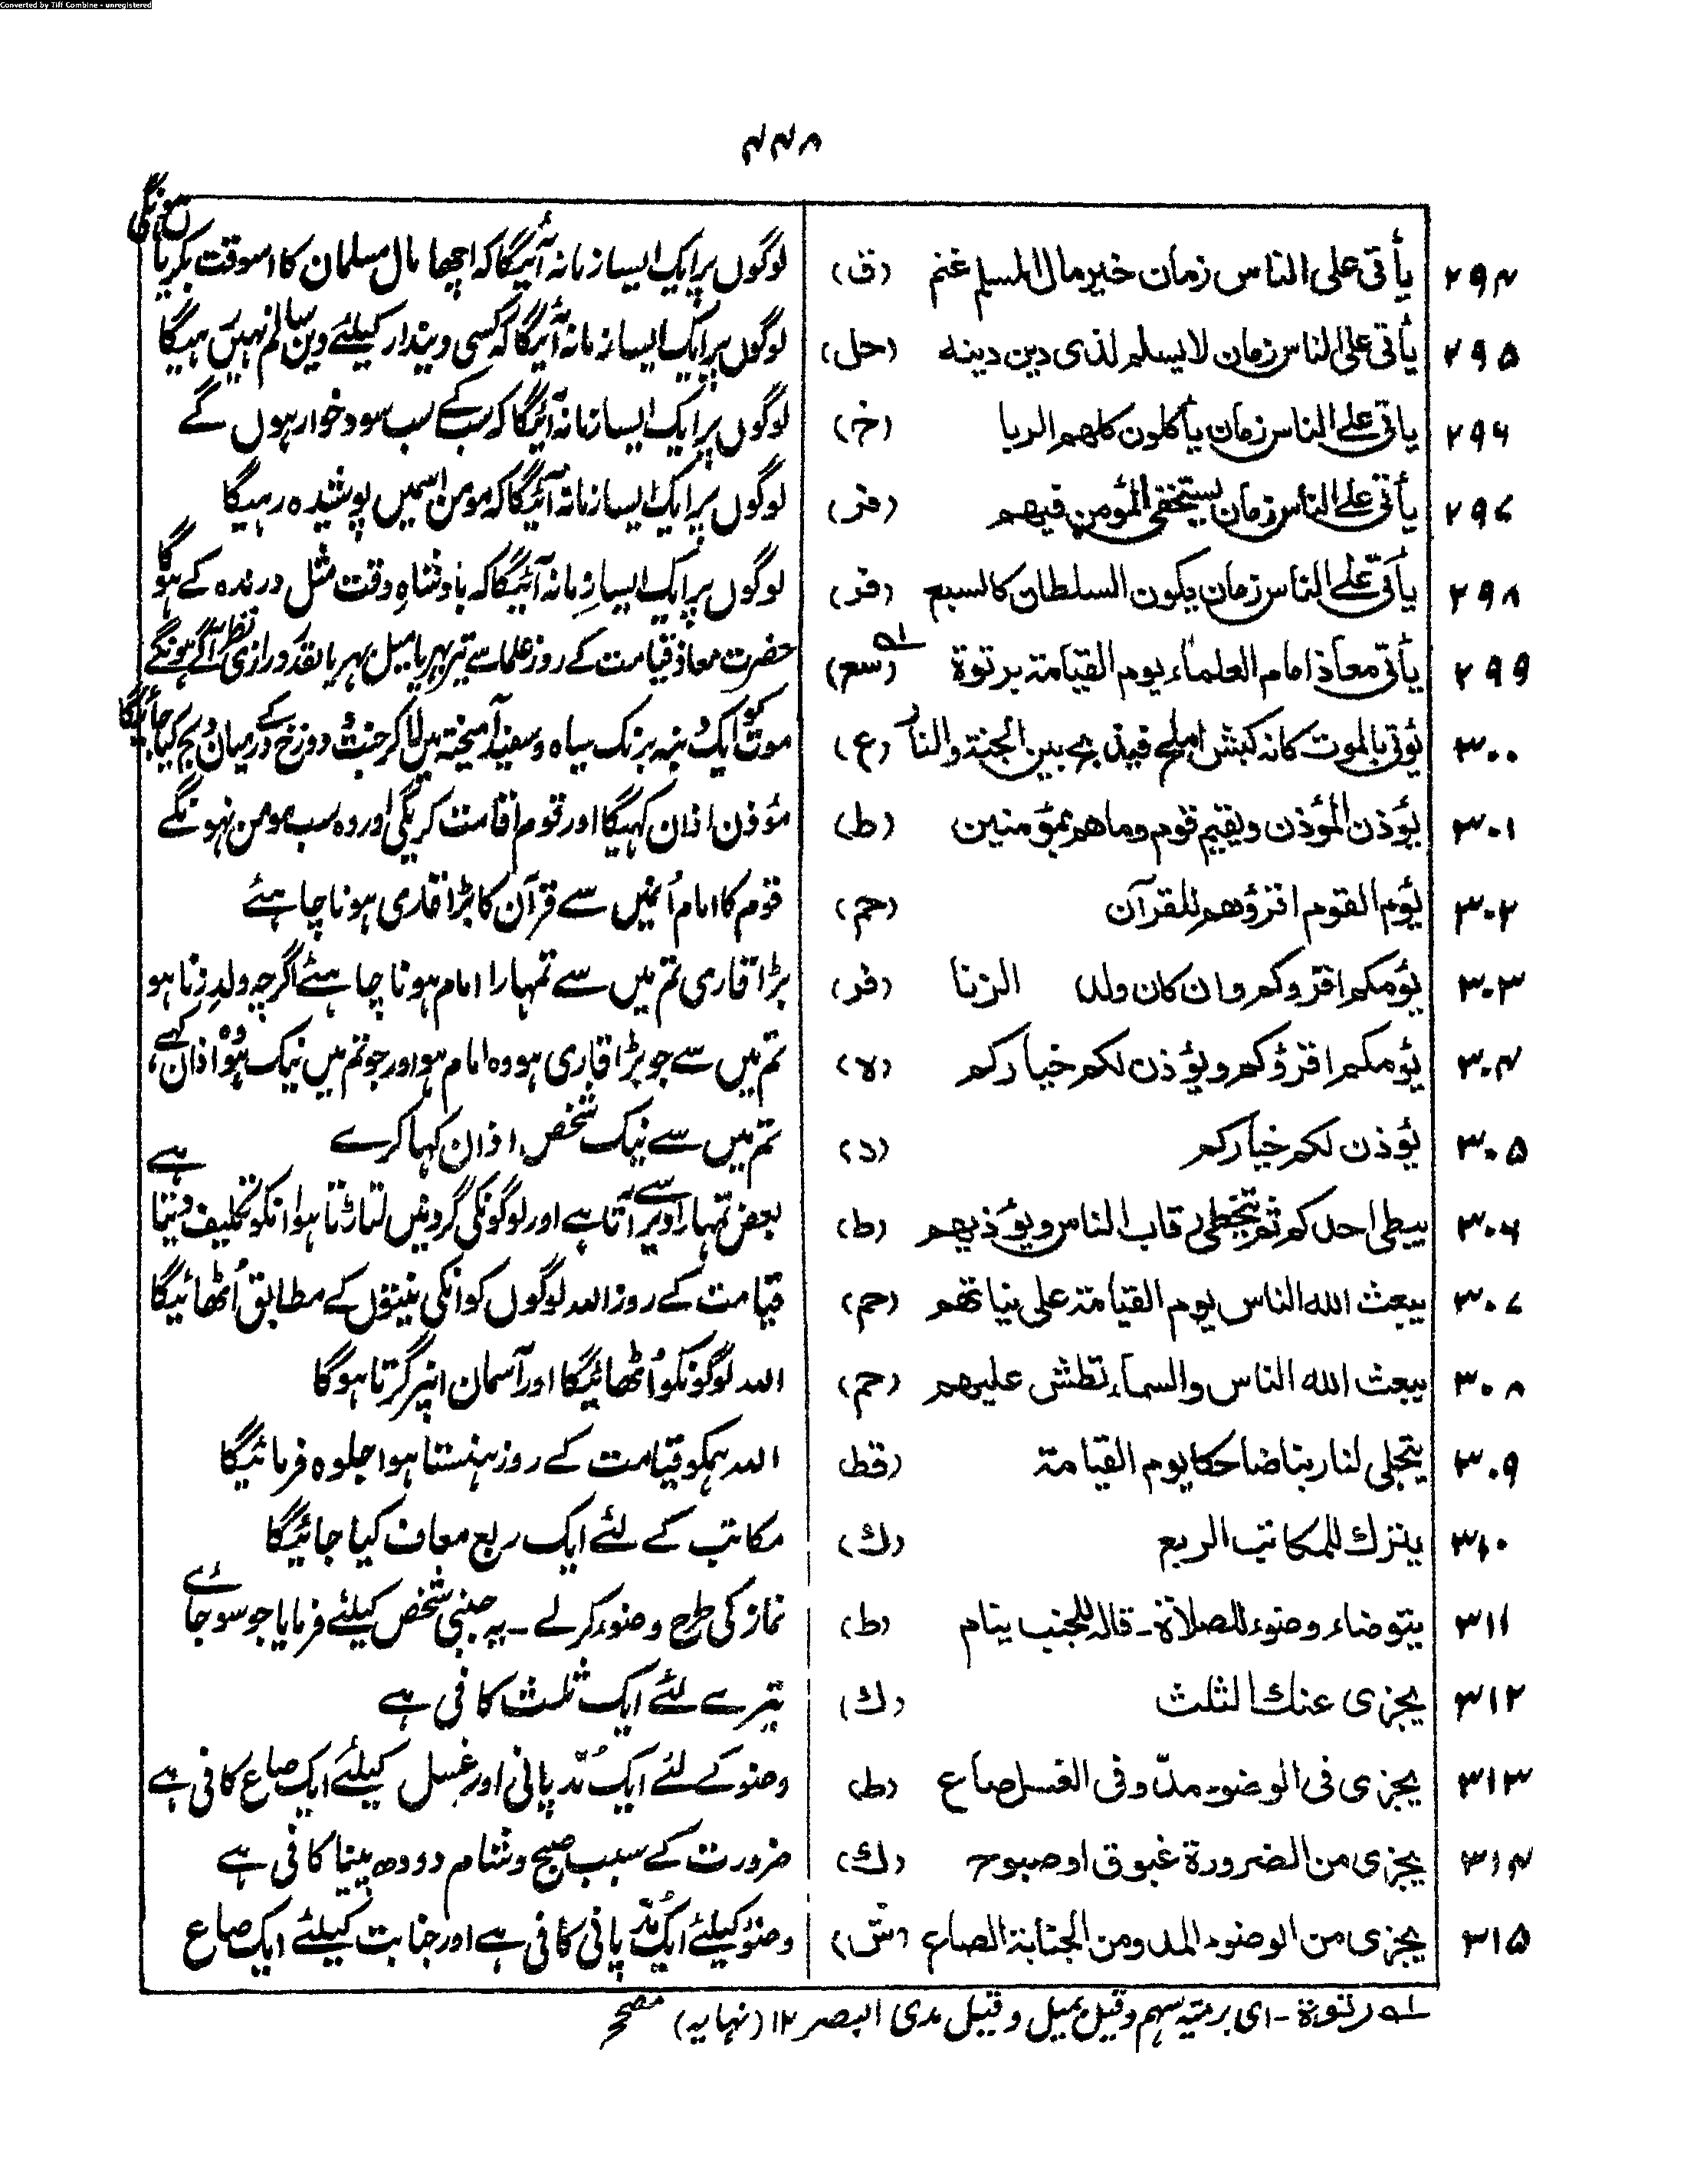 Converted by Tiff Combine - unregistered
۴۴۸
۲۹۴ یأتی علی الناس زمان خیر مال المسلم غنم (ق) لوگوں پر ایک ایسا زمانہ آئیگا کہ اچھا مال مسلمان کا اسوقت بکریاں ہونگی
۲۹۵ یأتی علی الناس زمان لا یسلم لذی دین دینہ (حل) لوگوں پر ایک ایسا زمانہ آئیگا کہ کسی دیندار کیلئے دین سالم نہیں رہیگا
۲۹۶ یاتی علی الناس زمان یأکلون کلھم الربا (خ) لوگوں پر ایک ایسا زمانہ آئیگا کہ سب کے سب سود خوار ہوں گے
۲۹۷ یأتی علی الناس زمان یستخفی المؤمن فیھم (فر) لوگوں پر ایک ایسا زمانہ آئیگا کہ مومن اسمیں پوشیدہ رہیگا
۲۹۸ یأتی علی الناس زمان یکون السلطان کالسبع (فر) لوگوں پر ایک ایسا زمانہ آئیگا کہ بادشاہِ وقت مثل درندہ کے ہوگا
۲۹۹ یأتی معاذ امام العلماء یوم القیامۃ برتوۃ لہ (سع) حضرت معاذ قیامت کے روز علما سے تیر بھر یا میل بھر یا بقدر درازی نظر آگے ہونگے
۳۰۰ یؤتی بالموت کانہ کبش املح فیذبح بین الجنۃ والنار (ع) موت کو ایک دنبہ برنگ سیاہ و سفید آمیختہ میں لا کر جنت و دوزخ کے درمیان ذبح کیا جائیگا
۳۰۱ یؤذن المؤذن ویقیم قوم وما ھم بمؤمنین (ط) مؤذن اذان کہیگا اور قوم اقامت کریگی اور وہ سب مومن نہونگے
۳۰۲ یؤم القوم اقرؤھم للقرآن (حم) قوم کا امام اُنمیں سے قرآن کا بڑا قاری ہونا چاہئے
۳۰۳ یؤمکم اقروکم وان کان ولد الزنا (فر) بڑا قاری تم میں سے تمہارا امام ہونا چاہئے اگرچہ ولدِ زنا ہو
۳۰۴ یؤمکم اقرؤکم ویؤذن لکم خیارکم (لا) تم میں سے جو بڑا قاری ہو وہ امام ہو اور جو تم میں نیک ہو وہ اذان کہے،
۳۰۵ یؤذن لکم خیارکم (د) تم میں سے نیک شخص اذان کہا کرے
۳۰۶ یبطی احدکم ثم یتخطی رقاب الناس ویؤذیھم (ط) بعض تمہارا دیر سے آتا ہے اور لوگونکی گردنیں لتاڑتا ہوا انکو تکلیف دیتا ہے
۳۰۷ یبعث اللہ الناس یوم القیامۃ علی نیاتھم (حم) قیامت کے روز اللہ لوگوں کو انکی نیتوں کے مطابق اُٹھائیگا
۳۰۸ یبعث اللہ الناس والسماء تطش علیھم (حم) اللہ لوگونکو اُٹھائیگا اور آسمان انپر گرتا ہوگا
۳۰۹ یتجلی لنا ربنا ضاحکا یوم القیامۃ (قط) اللہ ہمکو قیامت کے روز ہنستا ہوا جلوہ فرمائیگا
۳۱۰ یترک للمکاتب الربع (ک) مکاتب کے لئے ایک ربع معاف کیا جائیگا
۳۱۱ یتوضاء وضوء للصلاۃ ـ قالہ للجنب ینام (ط) نماز کی طرح وضو کرلے ـ یہ جنبی شخص کیلئے فرمایا جو سو جائے
۳۱۲ یجزی عنک الثلث (ک) تیرے لئے ایک ثلث کافی ہے
۳۱۳ یجزی فی الوضوء مدّ وفی الغسل صاع (ط) وضو کے لئے ایک مُدّ پانی اور غسل کیلئے ایک صاع کافی ہے
۳۱۴ یجزی من الضرورۃ غبوق او صبوح (ک) ضرورت کے سبب صبح و شام دودھ پینا کافی ہے
۳۱۵ یجزی من الوضوء المد ومن الجنابۃ الصاع (ش) وضو کیلئے ایک مُدّ پانی کافی ہے اور جنابت کیلئے ایک صاع
لہ رتوۃ ـ ای برمیۃ سہم وقیل بمیل وقیل مدی البصر ۱۲ (نہایہ) مصحح